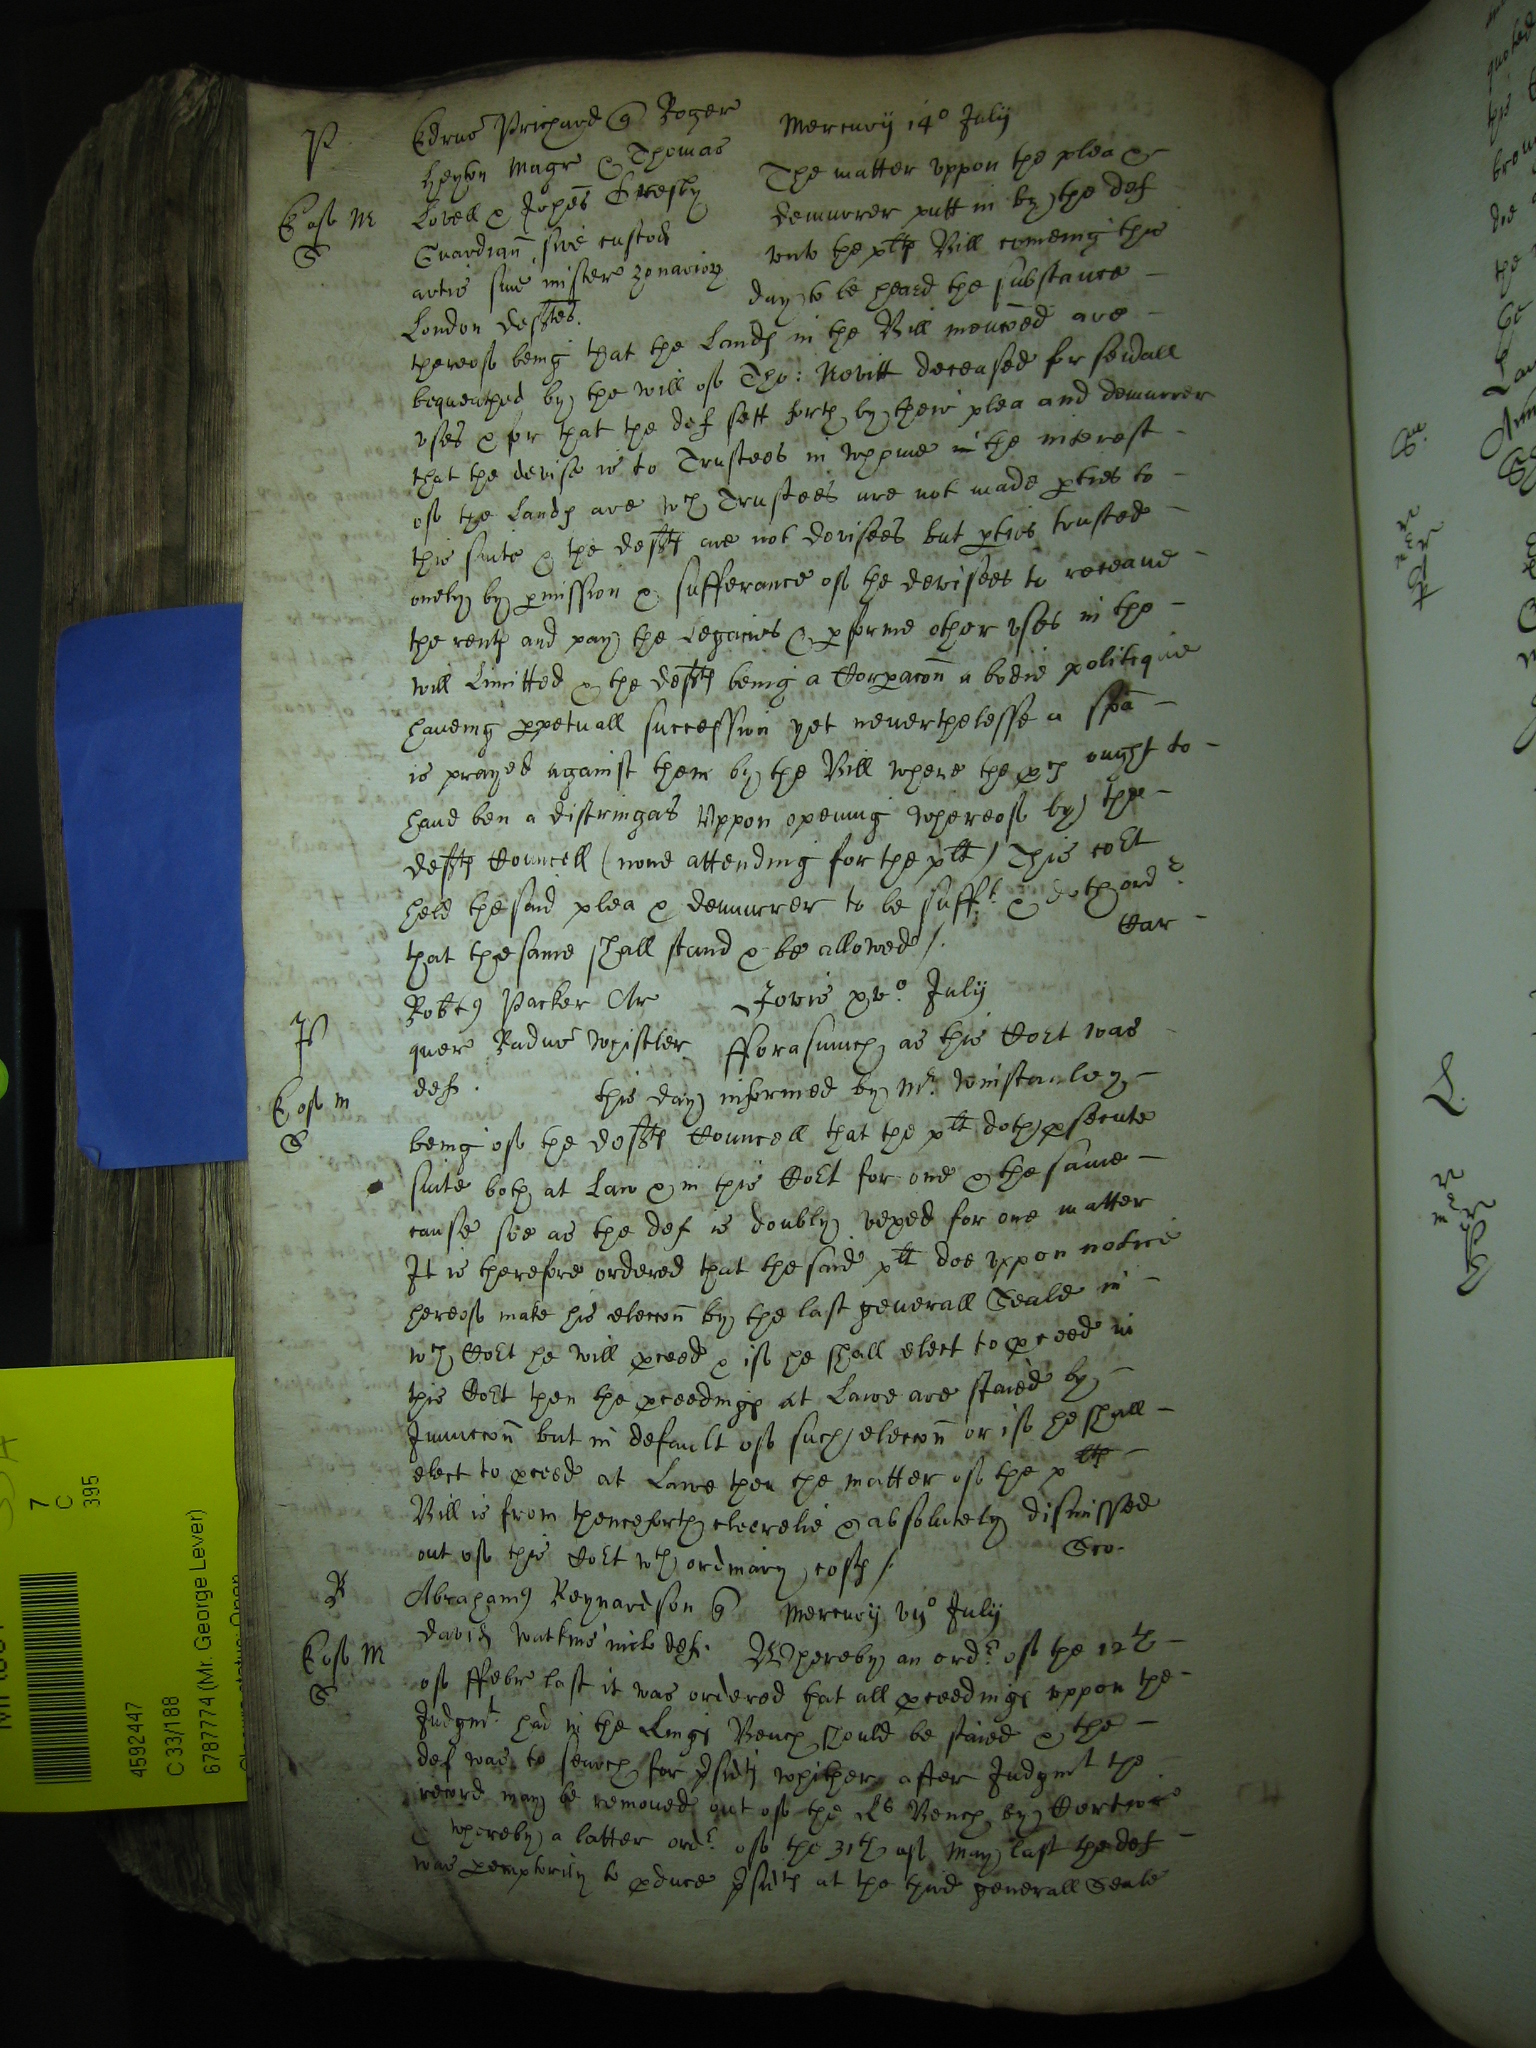 P
Edrus Prichard q Roger
Heyton Magr & Thomas
Lovell & Johes
Guardian sive custod
artis sive mister zonarior
London defts.
Mercurij 14o July
The matter vppon the plea &
demurrer putt in by the def
vnto the plts Bill comeing this
day to be heard the substance
thereof being that the Lands in the Bill menconed are
bequeathed by the will of Tho: Nevitt deceased for seuall
vses & for that the def sett forth by their plea and demurrer
that the devise is to Trustees in whome the interest
of the Lands are wch Trustees are not made pties to
this suite & the defts are not devisees but pties trusted
onely by pmission & sufferance of the devisees to receaue
the rents and pay the Legacies & pforme other vses in the
will Limitted & the defts being a Corpacon a bodie politique
haueing ppetuall succession yet neuerthelesse a spa
is prayed against them by the Bill where the pces ought to
haue ben a distringas Vppon opening whereof by the
defts Councell (none attending for the plt) This cort
held the said plea & demurrer to be sufft & doth ordr
that the same shall stand & be allowed /.
Car
P
Robtus Packer Ar
quer Radus Whistler
def.
Jovis xvo July
Ex of M
S
fforasmuch as this Cort was
this day informed by Mr. Winstanley
being of the defts Councell that the plt doth psecute
suite both at Law & in this Cort for one & the same
cause soe as the def is doubly vexed for one matter
It is therefore ordered that the said plt doe vppon notice
hereof make his eleccon by the last generall Seale in
wch Cort he will pceed & if he shall elect to pceed in
this Cort then the pceedings at Lawe are staied by
Iniunccon but in default of such eleccon or if he shall
elect to pceed at Lawe then the matter of the plts
Bill is from thenceforth cleerelie & absolutely dismissed
out of this Cort wth ordinary costs /.
R
Abrahamus Reynardson q
David Watkins mil def.
Mercurij vijo July
Whereby an ordr of the 12th
of ffebr last it was ordered that all pceedings vppon the
Judgmt had in the Kings Bench should be staied & the
def was to search for psidts whither after Judgmt the
record may be remoued out of the Ks Bench by
& whereby a latter ordr of the 31th of May last the def
was pemptorily to pduce psidts at the third generall Seale
7
C
395
4592447
C 33/188
6787774 (Mr. George Lever)